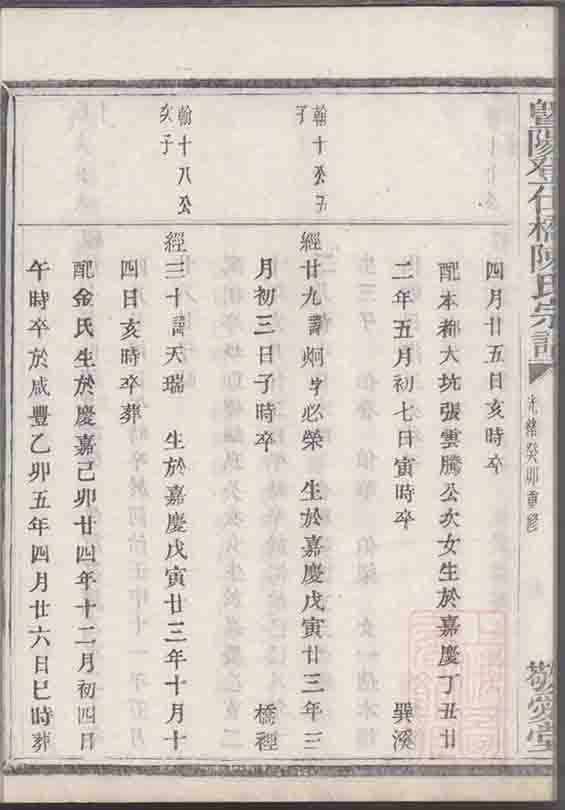 暨陽登仕橋陳氏宗譜
光緒癸卯重修
敬愛堂
四月廿五日亥時卒
配本都大坑張雲騰公次女生於嘉慶丁丑廿
二年五月初七日寅時卒 巽溪
翰十公子
子
經廿九諱炯字必榮 生於嘉慶戊寅廿三年三
月初三日子時卒 橋裡
翰十八公
次子
經三十諱天瑞 生於嘉慶戊寅廿三年十月十
四日亥時卒葬
配金氏生於慶嘉己卯廿四年十二月初四日
午時卒於咸豐乙卯五年四月廿六日巳時葬